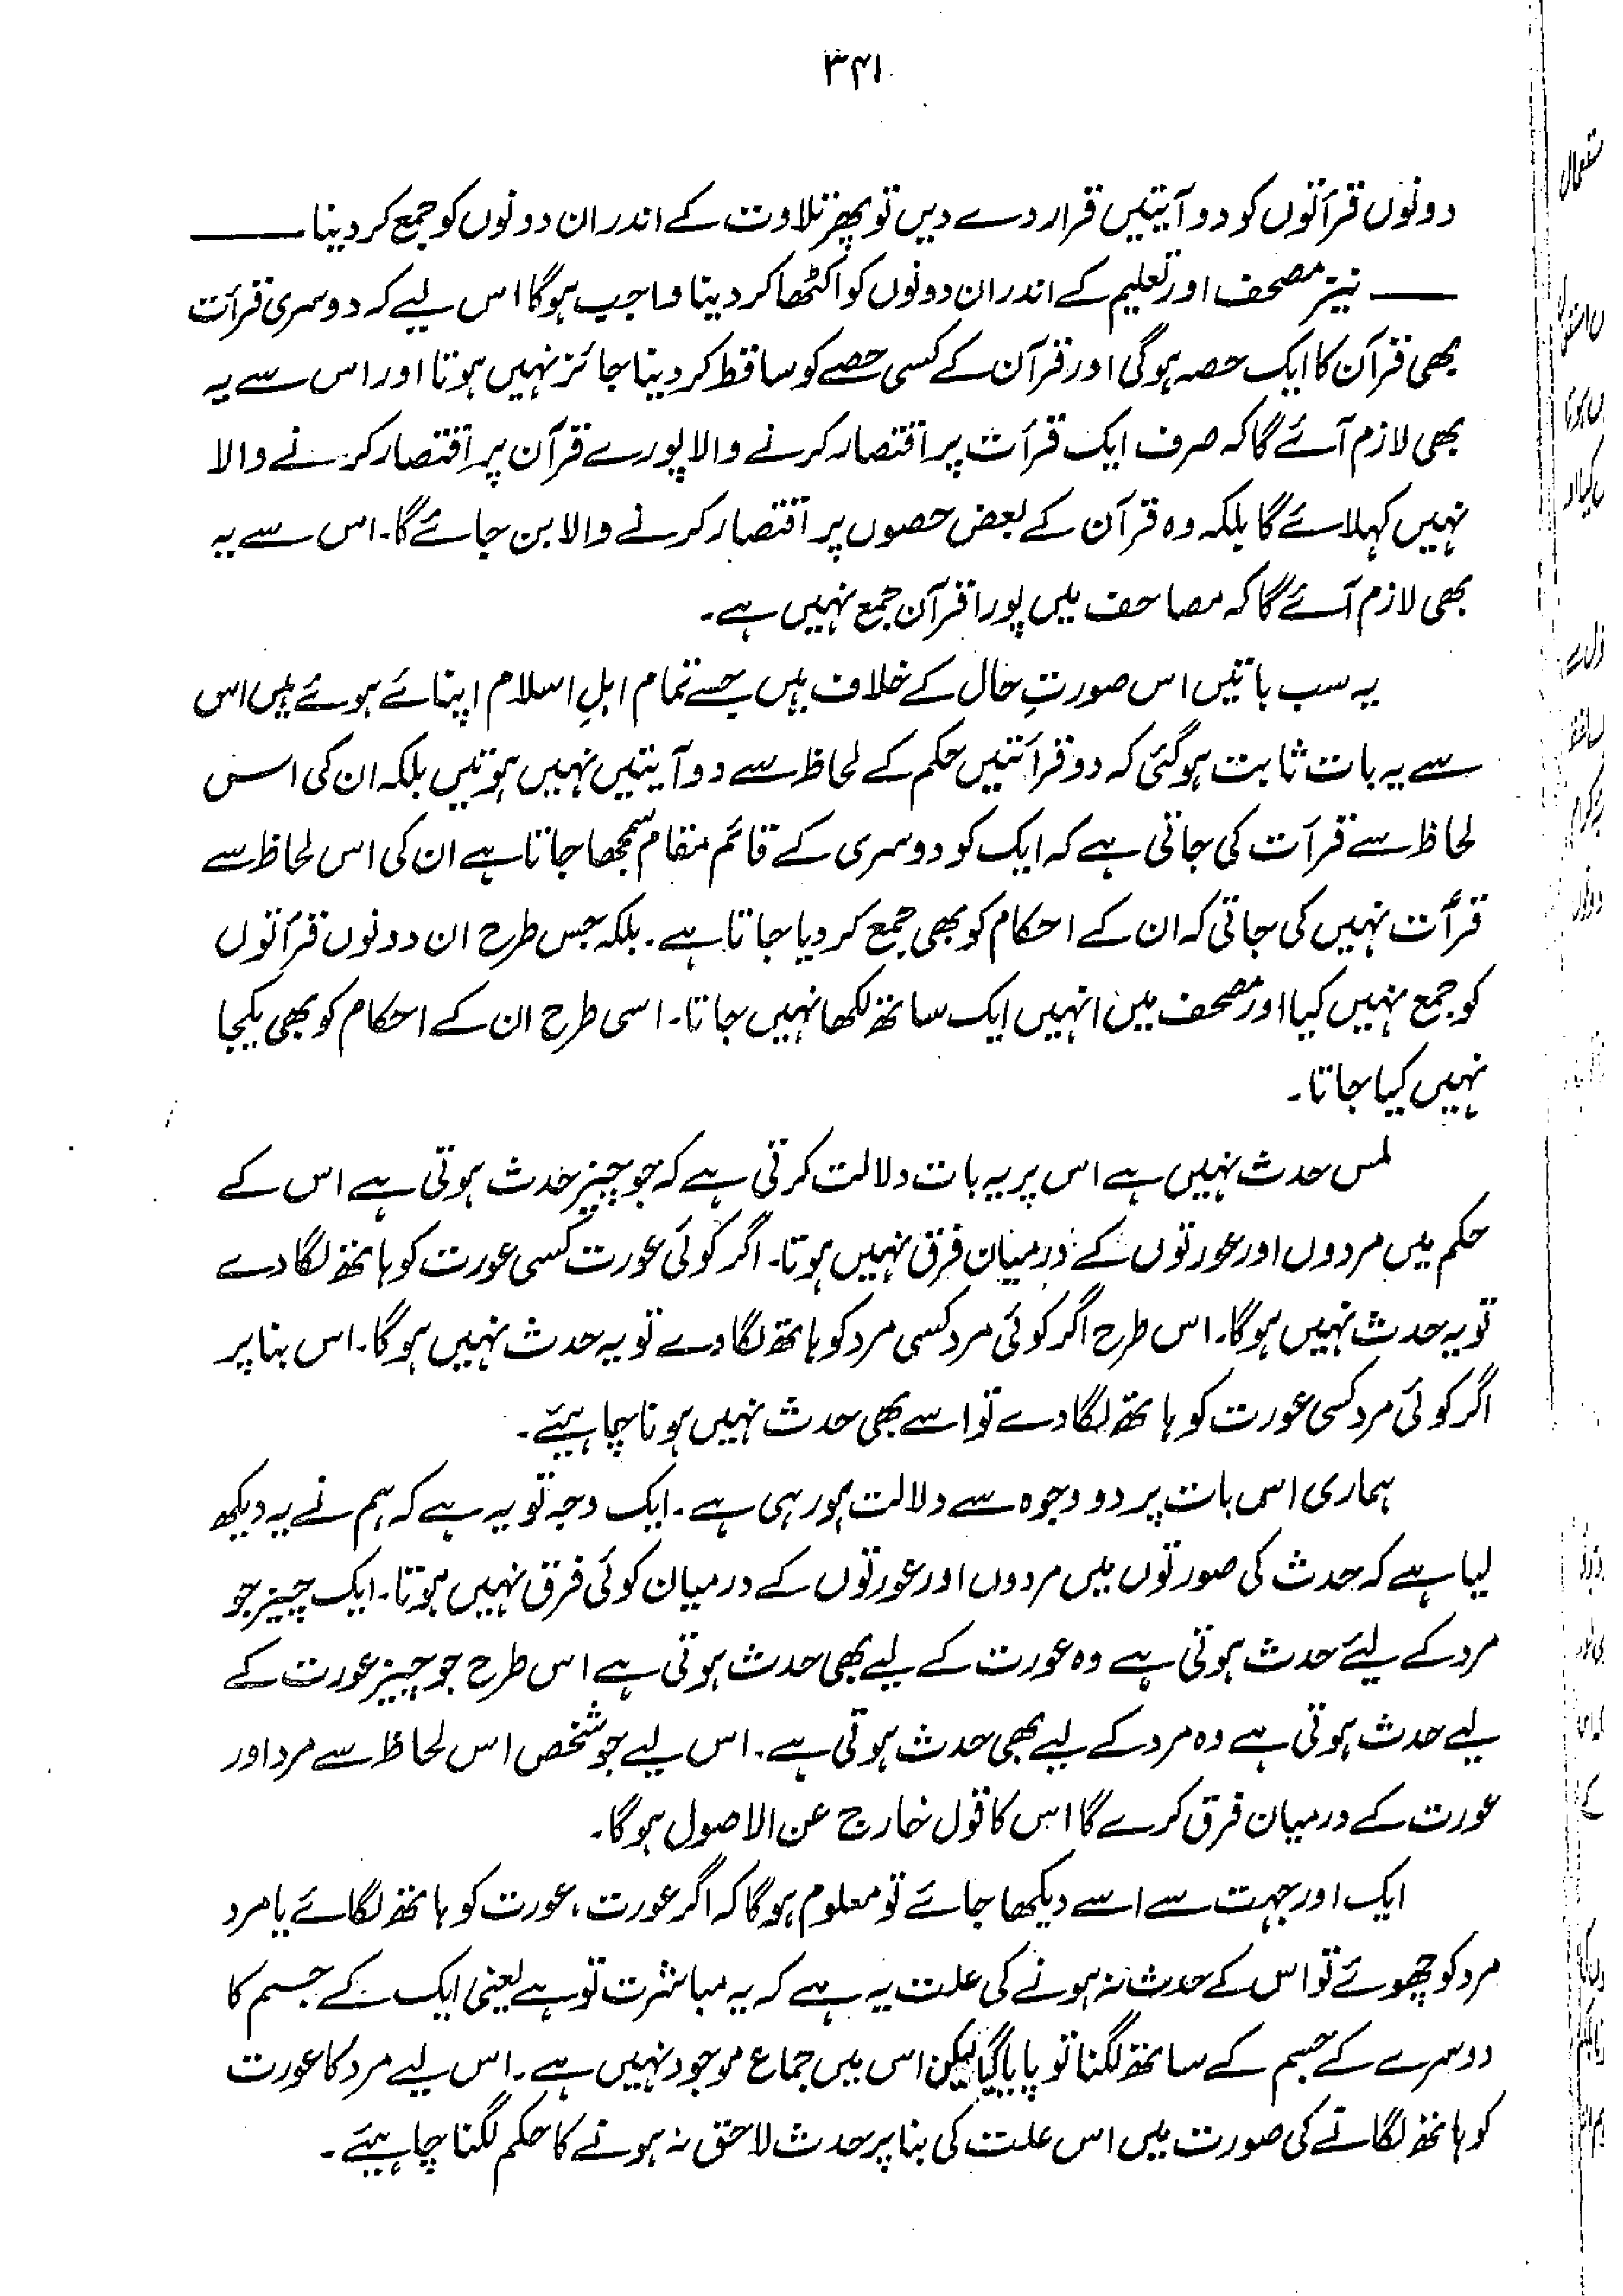 ۳۴۱
دونوں قرأتوں کو دو آیتیں قرار دے دیں تو پھر تلاوت کے اندر ان دونوں کو جمع کر دینا ——
—— نیز مصحف اور تعلیم کے اندر ان دونوں کو اکٹھا کر دینا واجب ہوگا اس لیے کہ دوسری قرأت
بھی قرآن کا ایک حصہ ہوگی اور قرآن کے کسی حصے کو ساقط کر دینا جائز نہیں ہوتا اور اس سے یہ
بھی لازم آئے گا کہ صرف ایک قرأت پر اقتصار کرنے والا پورے قرآن پر اقتصار کرنے والا
نہیں کہلائے گا بلکہ وہ قرآن کے بعض حصوں پر اقتصار کرنے والا بن جائے گا۔ اس سے یہ
بھی لازم آئے گا کہ مصاحف میں پورا قرآن جمع نہیں ہے۔
یہ سب باتیں اس صورتِ حال کے خلاف ہیں جسے تمام اہلِ اسلام اپنائے ہوئے ہیں اس
سے یہ بات ثابت ہوگئی کہ دو قرأتیں حکم کے لحاظ سے دو آیتیں نہیں ہوتیں بلکہ ان کی اس
لحاظ سے قرأت کی جاتی ہے کہ ایک کو دوسری کے قائم مقام سمجھا جاتا ہے ان کی اس لحاظ سے
قرأت نہیں کی جاتی کہ ان کے احکام کو بھی جمع کر دیا جاتا ہے۔ بلکہ جس طرح ان دونوں قرأتوں
کو جمع نہیں کیا اور مصحف میں انہیں ایک ساتھ لکھا نہیں جاتا۔ اسی طرح ان کے احکام کو بھی یکجا
نہیں کیا جاتا۔
لمس حدث نہیں ہے اس پر یہ بات دلالت کرتی ہے کہ جو چیز حدث ہوتی ہے اس کے
حکم میں مردوں اور عورتوں کے درمیان فرق نہیں ہوتا۔ اگر کوئی عورت کسی عورت کو ہاتھ لگا دے
تو یہ حدث نہیں ہوگا۔ اس طرح اگر کوئی مرد کسی مرد کو ہاتھ لگا دے تو یہ حدث نہیں ہوگا۔ اس بنا پر
اگر کوئی مرد کسی عورت کو ہاتھ لگا دے تو اسے بھی حدث نہیں ہونا چاہیئے۔
ہماری اس بات پر دو وجوہ سے دلالت ہو رہی ہے۔ ایک وجہ تو یہ ہے کہ ہم نے یہ دیکھ
لیا ہے کہ حدث کی صورتوں میں مردوں اور عورتوں کے درمیان کوئی فرق نہیں ہوتا۔ ایک چیز جو
مرد کے لیئے حدث ہوتی ہے وہ عورت کے لیے بھی حدث ہوتی ہے اس طرح جو چیز عورت کے
لیے حدث ہوتی ہے وہ مرد کے لیے بھی حدث ہوتی ہے۔ اس لیے جو شخص اس لحاظ سے مرد اور
عورت کے درمیان فرق کرے گا اس کا قول خارج عن الاصول ہوگا۔
ایک اور جہت سے اسے دیکھا جائے تو معلوم ہوگا کہ اگر عورت، عورت کو ہاتھ لگائے یا مرد
مرد کو چھوئے تو اس کے حدث نہ ہونے کی علت یہ ہے کہ یہ مباشرت تو ہے یعنی ایک کے جسم کا
دوسرے کے جسم کے ساتھ لگنا تو پایا گیا لیکن اس میں جماع موجود نہیں ہے۔ اس لیے مرد کا عورت
کو ہاتھ لگانے کی صورت میں اس علت کی بنا پر حدث لاحق نہ ہونے کا حکم لگنا چاہیئے۔